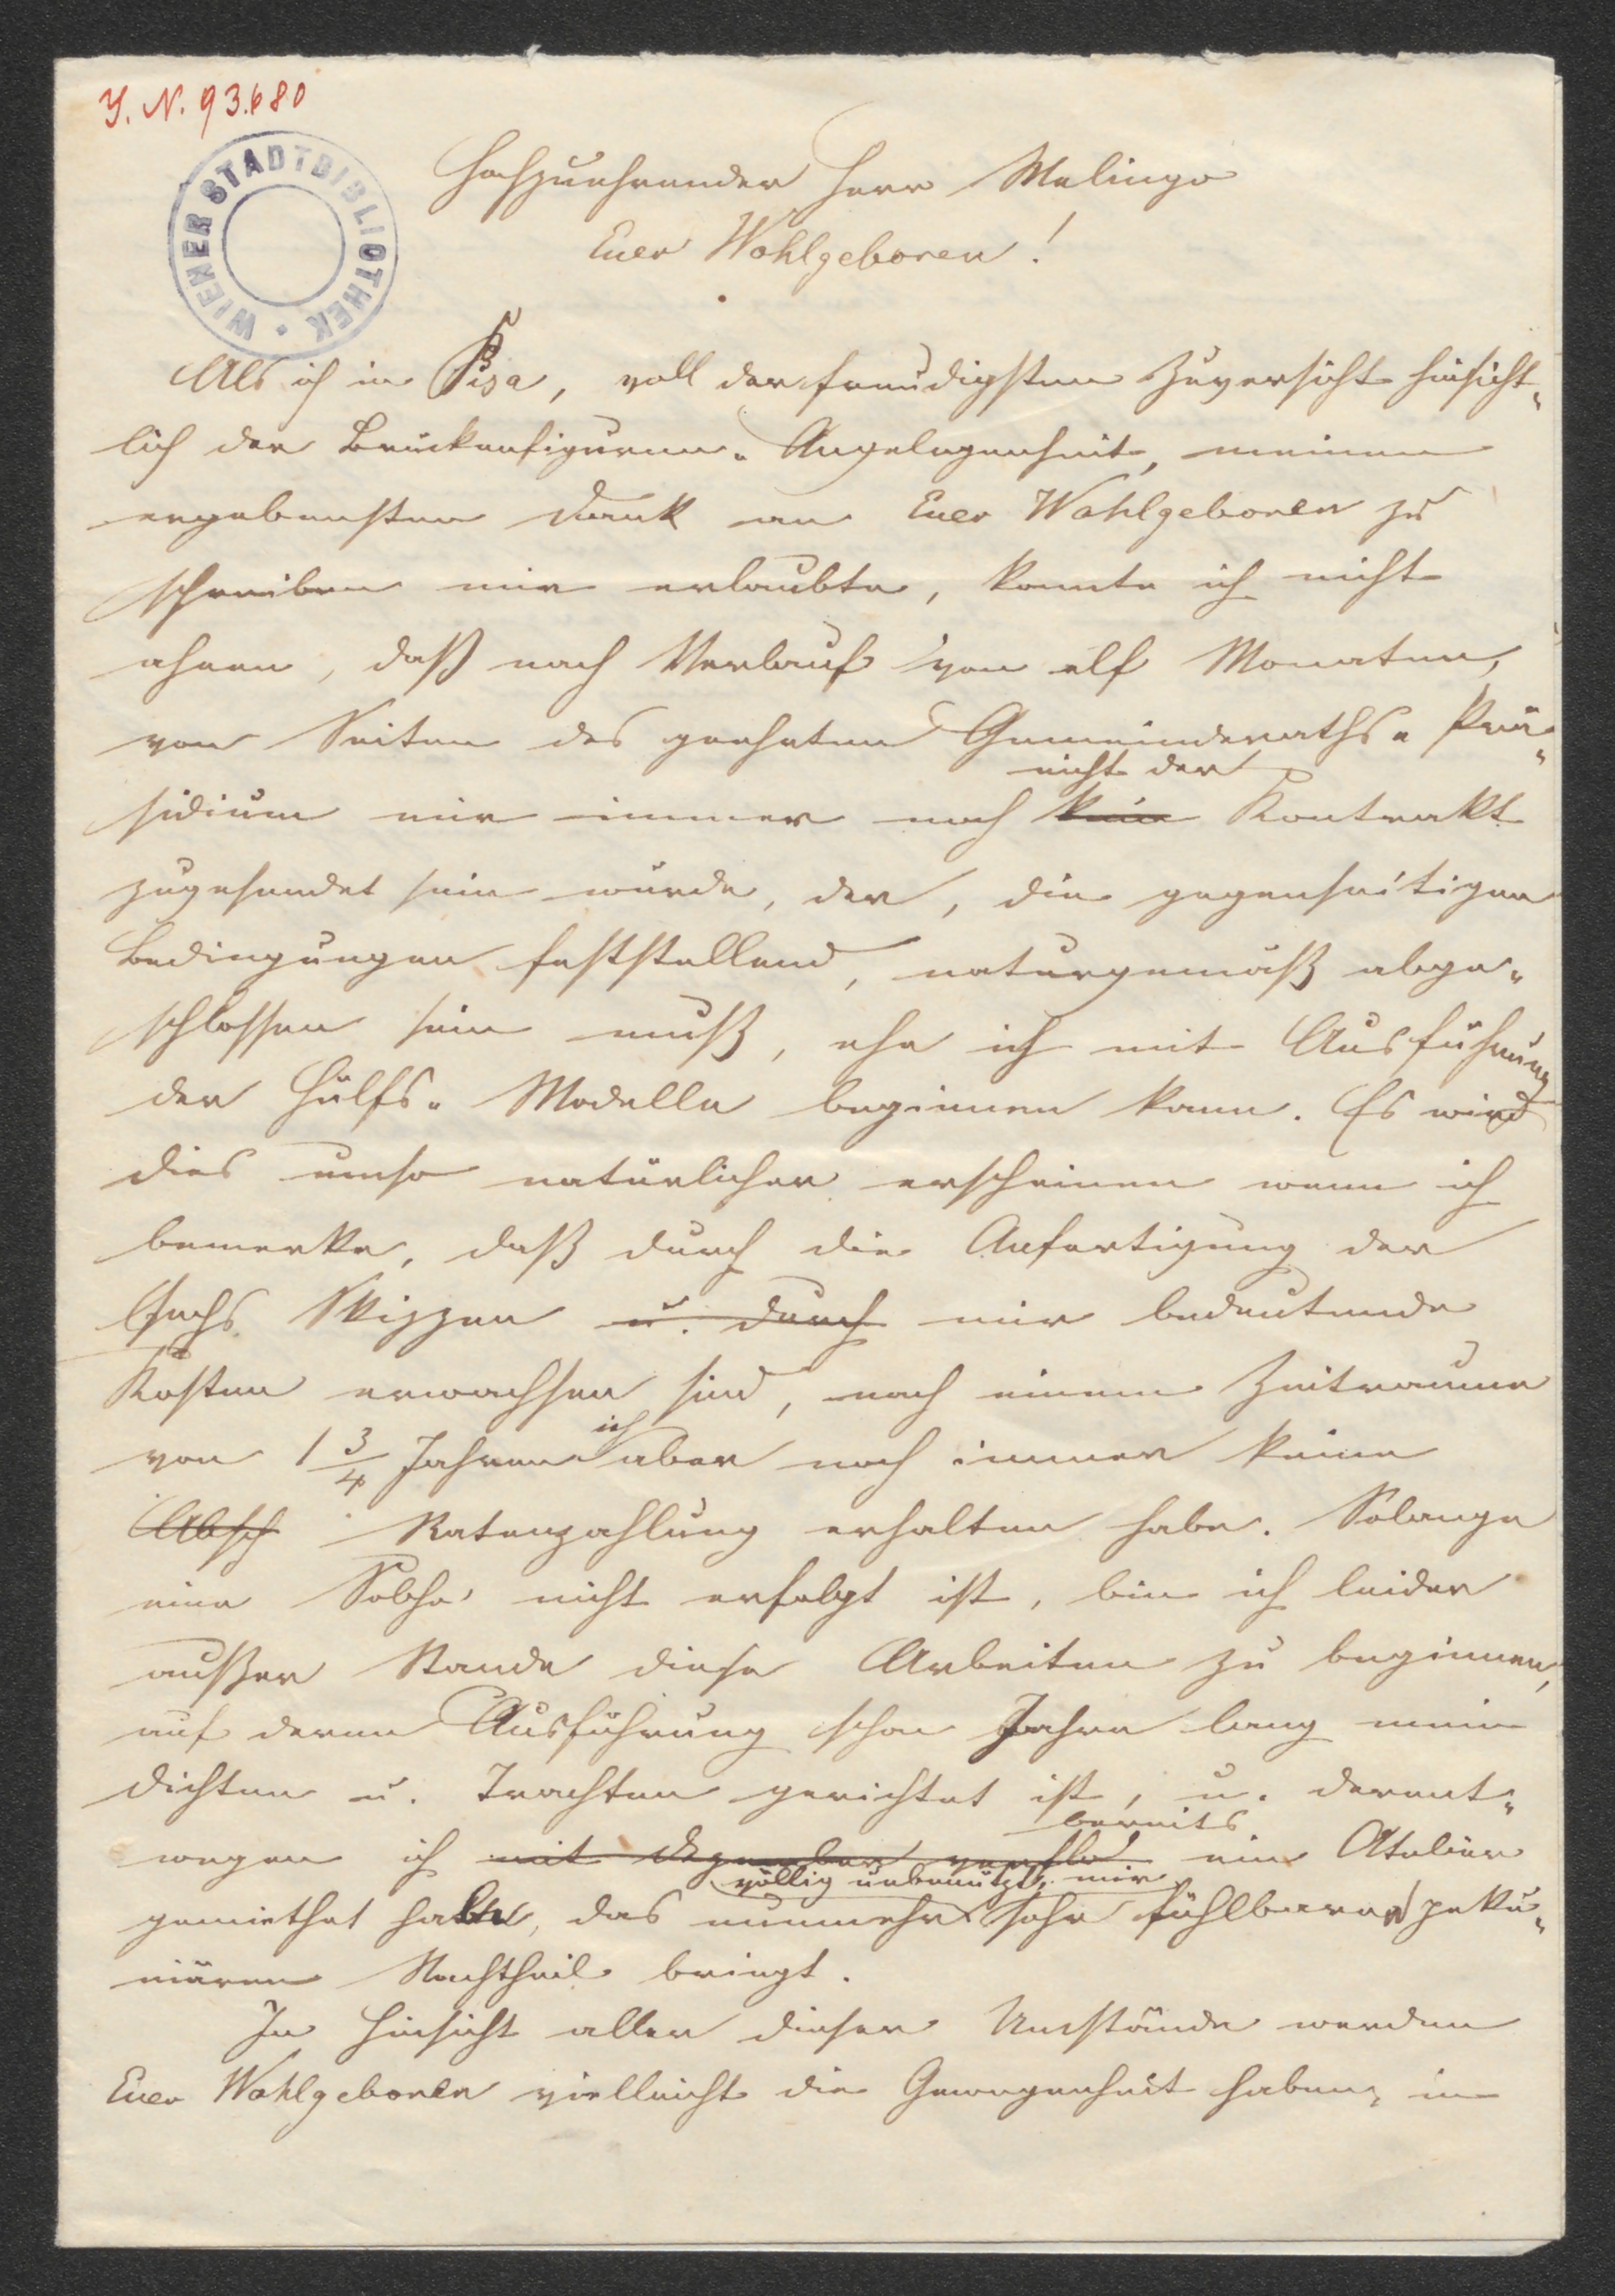 J. N. 93.680
WIENER STADTBIBLIOTHEK
Hochzuehrender Herr Melingo
Euer Wohlgeboren!
Als ich in Pisa, voll der freudigsten Zuversicht hinsicht-
lich der Brückenfiguren-Angelegenheit, meinen
ergebensten Dank an Euer Wohlgeboren zu
schreiben mir erlaubte, konnte ich nicht
ahnen, daß nach Verlauf von elf Monaten,
von Seiten des geehrten Gemeinderaths-Prä-
nicht der
sidium mir immer noch kein Kontrakt
zugesendet sein würde, der, die gegenseitigen
Bedingungen feststellend, naturgemäß abge-
schlossen sein muß, ehe ich mit Ausführung
der Hülfs-Modelle beginnen kann. Es wird
dies umso natürlicher erscheinen wenn ich
bemerke, daß durch die Anfertigung der
sechs Skizzen u. durch mir bedeutende
Kosten erwachsen sind, nach einem Zeitraume
ich
von 1 3/4 Jahren aber noch immer keine
Absch Ratenzahlung erhalten habe. Solange
eine Solche nicht erfolgt ist, bin ich leider
außer Stande diese Arbeiten zu beginnen,
auf deren Ausführung schon Jahre lang mein
Dichten u. Trachten gerichtet ist, u. derent-
bereits
wegen ich mit ein Atelier
völlig unbenützt, mir
gemiethet habe, das nunmehr sehr fühlbaren peku-
niären Nachtheil bringt.
In Hinsicht aller dieser Umstände werden
Euer Wohlgeboren vielleicht die Gewogenheit haben, in